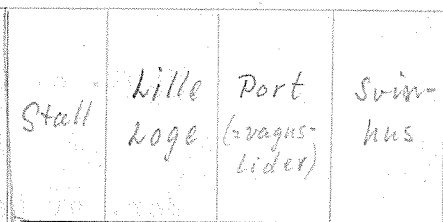 Stall
Lille
Loge
Port
(=vagns-
lider)
Svin-
hus